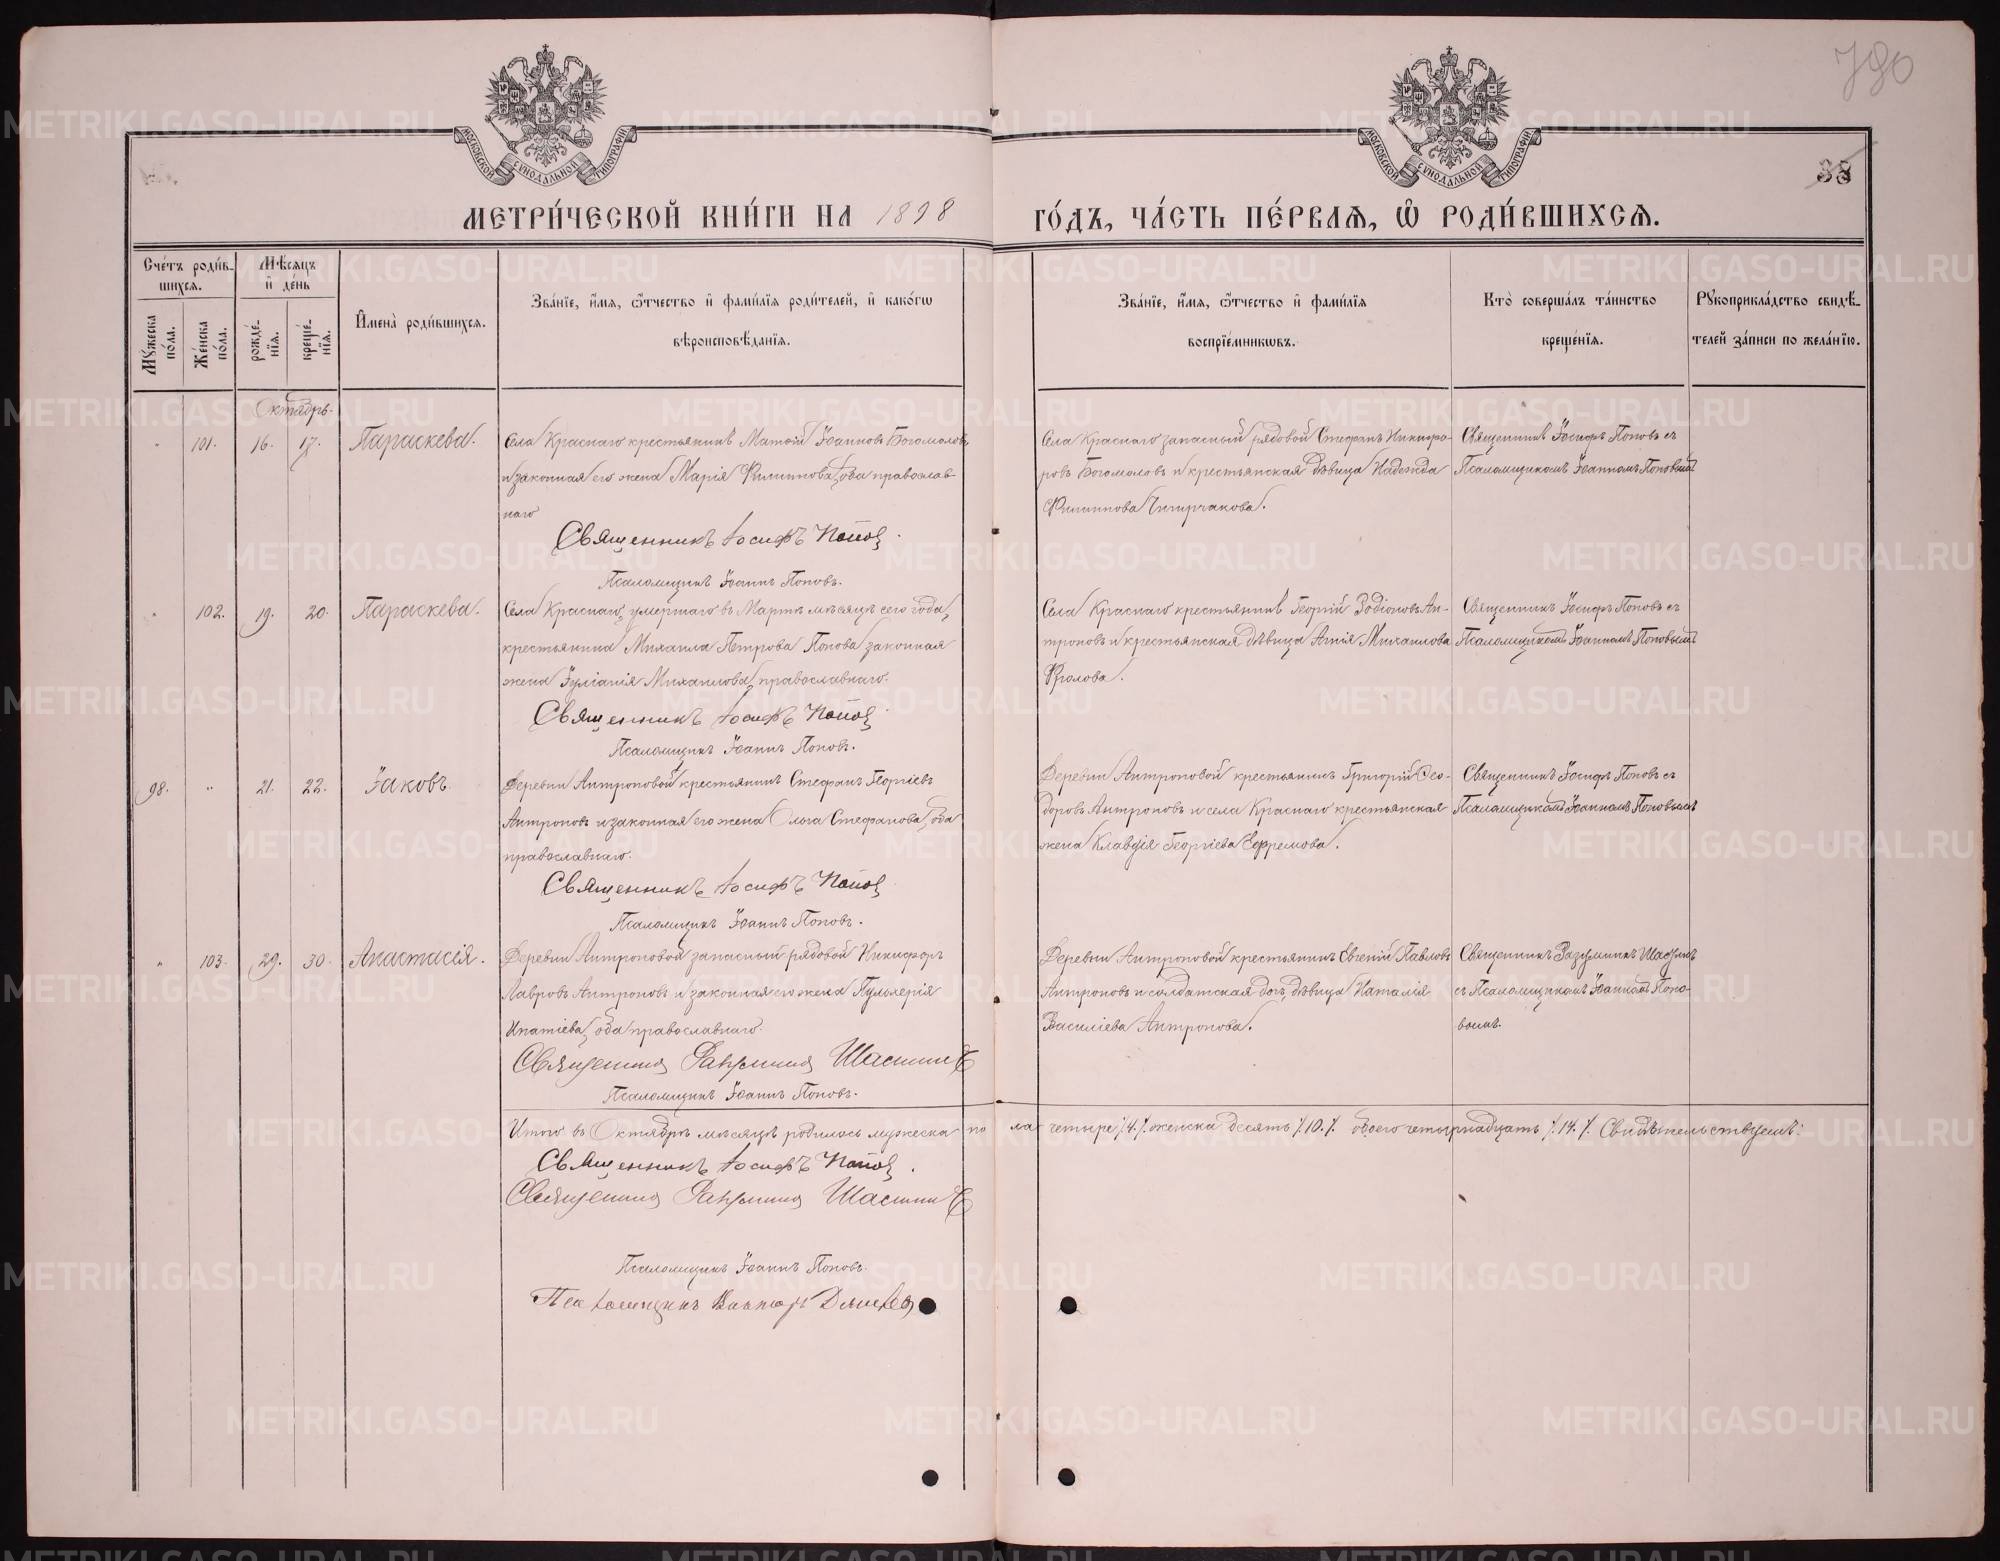 780
38
МОСКОВСКОЙ СѴНОДАЛЬНОЙ ТИПОГРАФІИ
МОСКОВСКОЙ СѴНОДАЛЬНОЙ ТИПОГРАФІИ
МЕТРИ́ЧЕСКОЙ КНИ́ГИ НА 1898 ГО́ДЪ, ЧА́СТЬ ПЕ́РВАѦ, Ѽ РОДИ́ВШИХСѦ.
Сче́тъ роди́в-
шихсѧ.
Мꙋжеска
по́ла.
Же́нска
по́ла.
Мѣ́сѧцъ
и҆ де́нь
рожде́-
нїѧ.
креще́-
нїѧ.
И҆мена̀ роди́вшихсѧ.
Зва́нїе, и҆́мѧ, ѻ҆́тчество и҆ фами́лїѧ роди́телей, и҆ како́гѡ
вѣроисповѣ́данїѧ.
Зва́нїе, и҆́мѧ, ѻ҆́тчество и҆ фами́лїѧ
воспрїе́мникѡвъ.
Кто̀ соверша́лъ та́инство
креще́нїѧ.
Рꙋкоприкла́дство свидѣ́-
телей за́писи по жела́нїю.
Октябрь.
" 101. 16. 17. Параскева.
Села Краснаго крестьянинъ Матѳій Іоанновъ Богомоловъ
и законная его жена Марія Филиппова, оба православ-
наго
Священникъ Іосифъ Попов.
Псаломщикъ Іоаннъ Поповъ.
Села Краснаго запасный рядовой Стефанъ Никифо-
ровъ Богомоловъ и крестьянская дѣвица Надежда
Филиппова
Священникъ Іосифъ Поповъ съ
Псаломщикомъ Іоанномъ Поповымъ
" 102. 19. 20. Параскева.
Села Краснаго, умершаго въ Мартѣ мѣсяцѣ сего года,
крестьянина Михаила Петрова Попова законная
жена Іуліанія Михаилова, православнаго.
Священникъ Іосифъ Попов
Псаломщикъ Іоаннъ Поповъ.
Села Краснаго крестьянинъ Георгій Родіоновъ Ан-
троповъ и крестьянская дѣвица Михаилова
Фролова.
Священникъ Іосифъ Поповъ съ
Псаломщикомъ Іоанномъ Поповымъ
98. " 21. 22. Іаковъ.
Деревни Антроповой крестьянинъ Стефанъ Георгіевъ
Антроповъ и законная его жена Ольга Стефанова, оба
православнаго.
Священникъ Іосифъ Попов
Псаломщикъ Іоаннъ Поповъ.
Деревни Антроповой крестьянинъ Григорій Ѳео-
доровъ Антроповъ и села Краснаго крестьянская
жена Клавдія Георгіева Ефремова.
Священникъ Іосифъ Поповъ съ
Псаломщикомъ Іоанномъ Поповымъ
" 103. 29. 30. Анастасія.
Деревни Антроповой запасный рядовой Никифоръ
Лавровъ Антроповъ и законная его жена Пульхерія
Ипатіева, оба православнаго.
Священникъ Разумникъ
Псаломщикъ Іоаннъ Поповъ.
Деревни Антроповой крестьянинъ Евгеній Павловъ
Антроповъ и солдатская дочь, дѣвица Наталія
Василіева Антропова.
Священникъ Разумникъ
съ Псаломщикомъ Іоанномъ Попо-
вымъ.
Итого въ Октябрѣ мѣсяцѣ родилось мужеска пола четыре /.4./. женска десять /.10./. обоего четырнадцать /.14./. Свидѣтельствуемъ:
Священникъ Іосифъ Попов.
Священникъ Разумникъ
Псаломщикъ Іоаннъ Поповъ.
Псаломщикъ Викторъ
METRIKI.GASO-URAL.RU